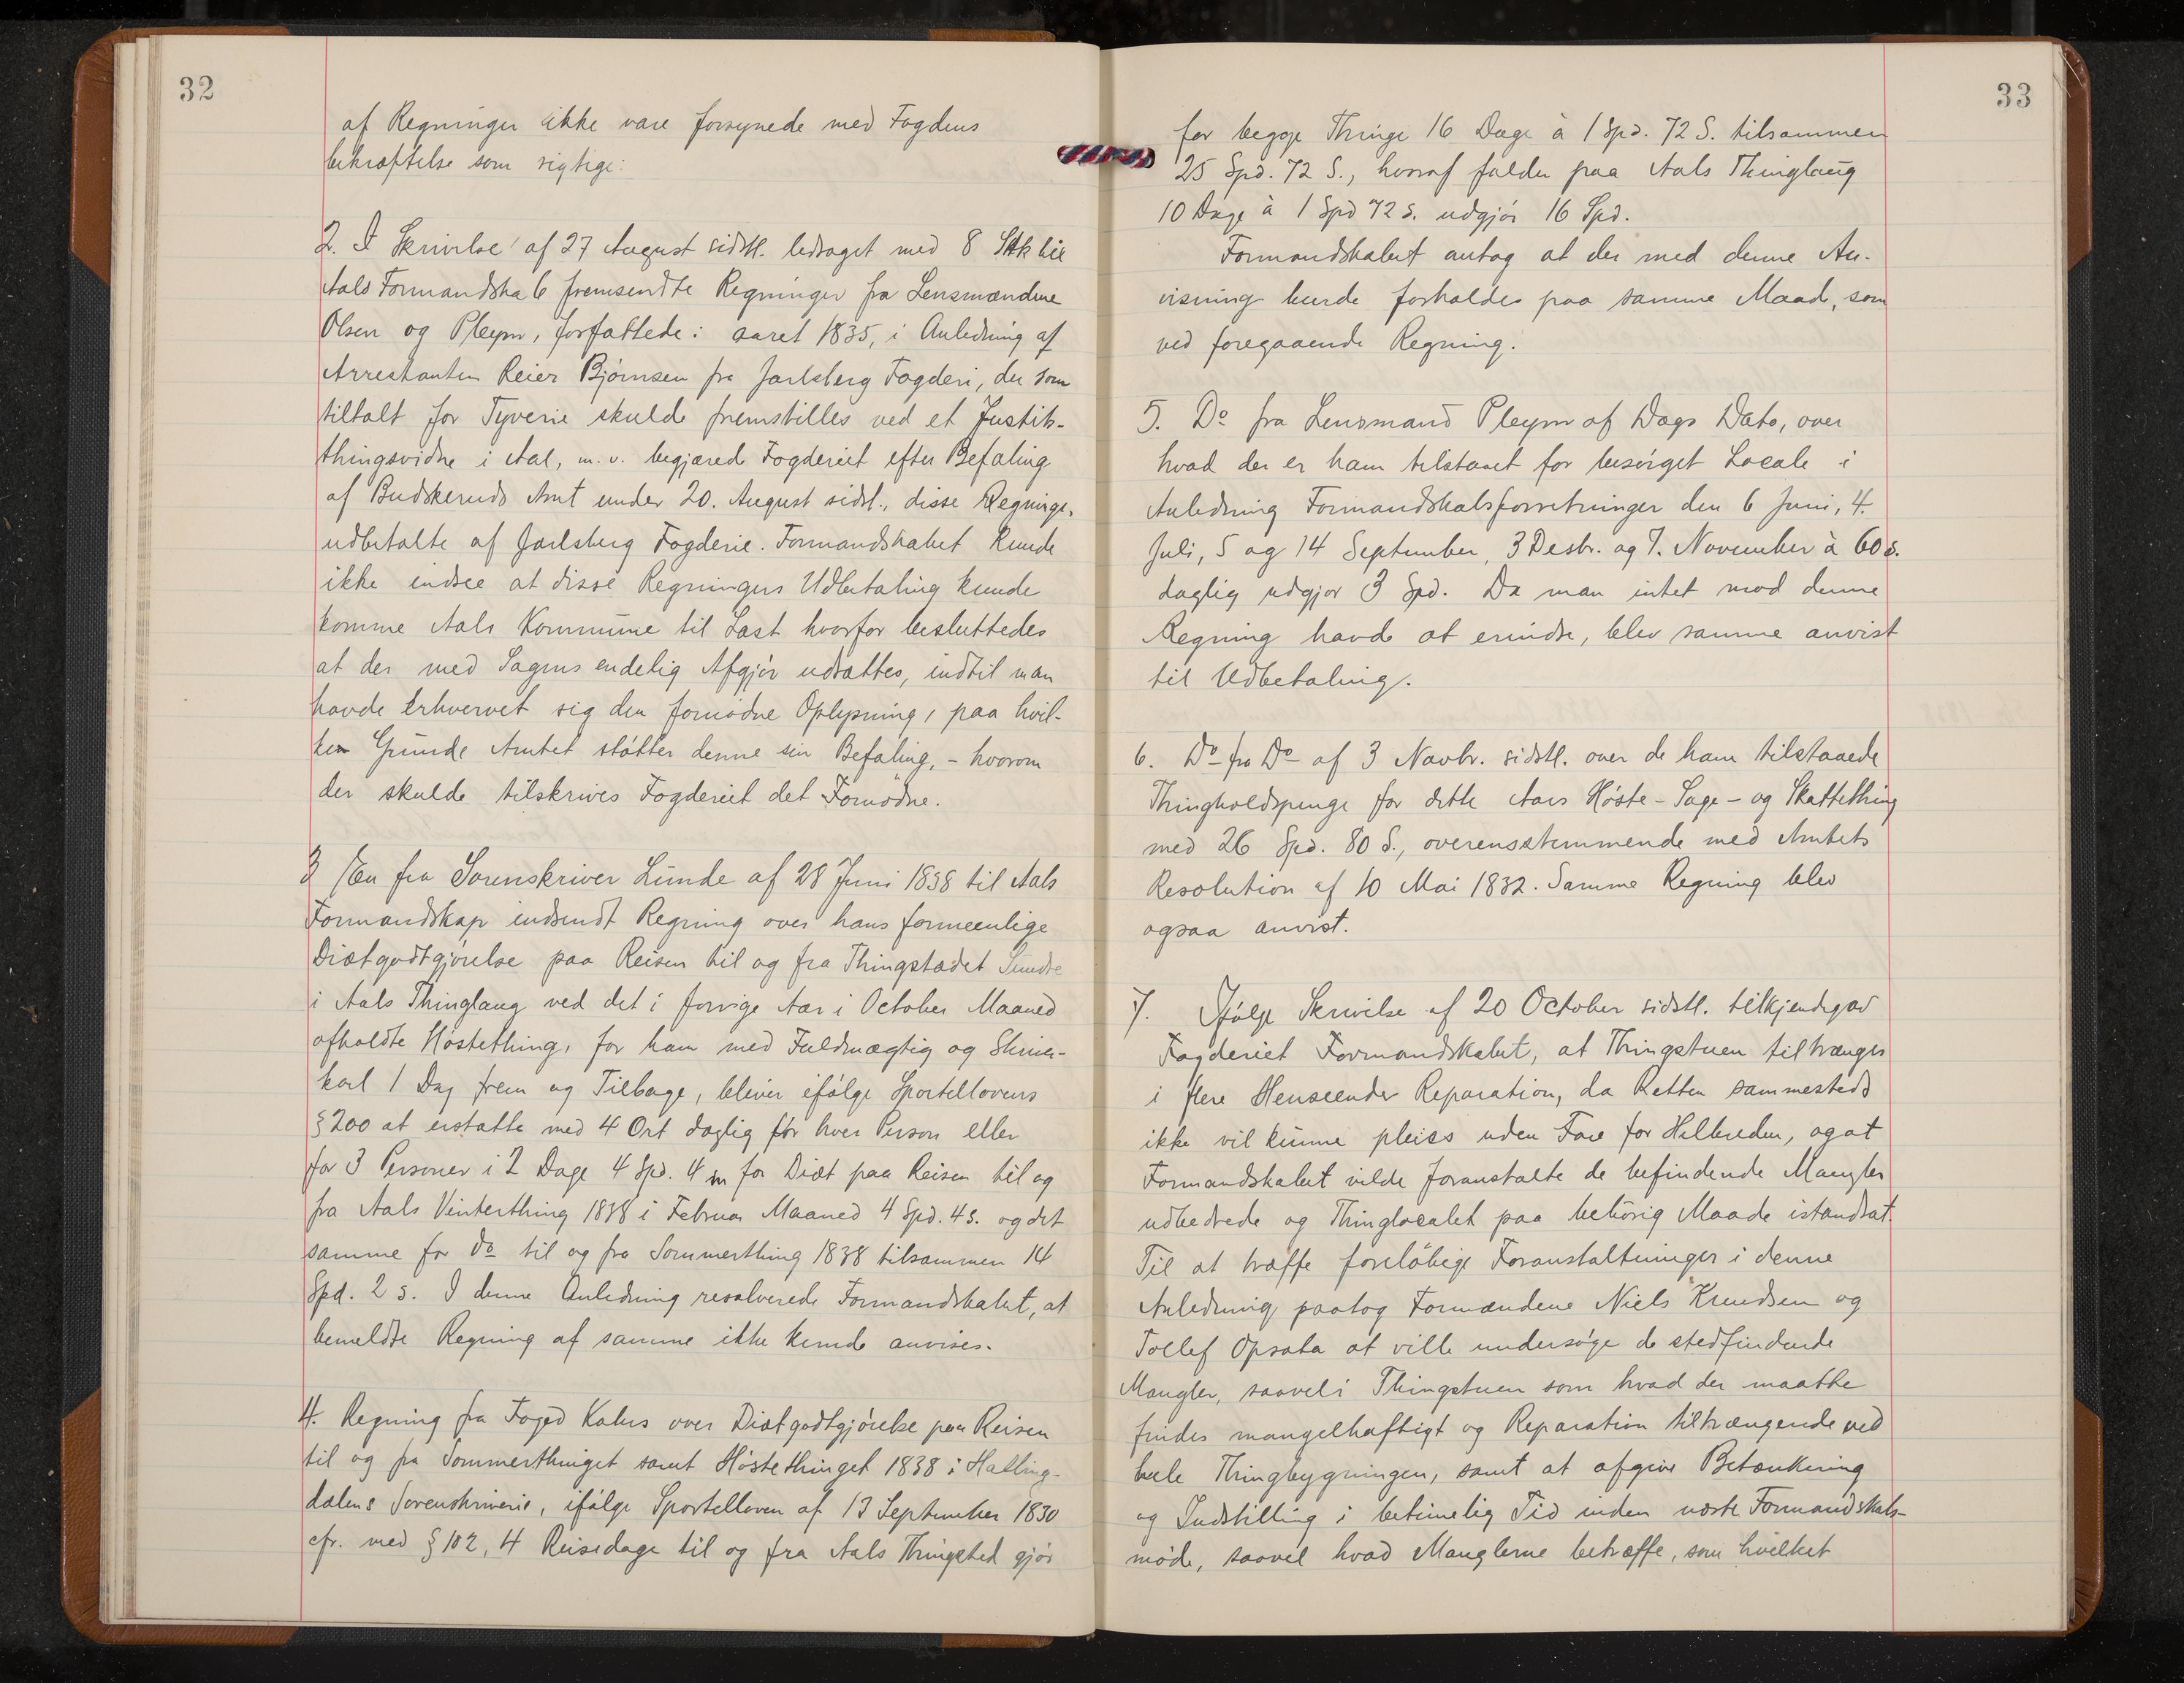 32
af Regninger ikke vare forsynede med Fogdens
bekræftelse som rigtige:
2. I Skrivelse af 27 August sidstl. ledsaget med 8 Stk til
Aals Formandskab fremsendte Regninger fra Lensmændene
Olsen og Pleym, forfattede i aaret 1835, i Anledning af
Arrestanten Reier Bjørnsen fra Jarlsberg Fogderi, der som
tiltalt for Tyverie skulde fremstilles ved et Justits-
thingsvidne i Aal, m. v. begjæred Fogderiet efter Befaling
af Budskeruds Amt under 20. August sidstl., disse Regninger
udbetalte af Jarlsberg Fogderie. Formandskabet kunde
ikke indsee at disse Regningers Udbetaling kunde
komme Aals Kommune til Last hvorfor besluttedes
at der med Sagens endelig Afgjør udsættes, indtil man
havde Erhvervet sig den fornødne Oplysning, paa hvil-
ken Grunde Amtet støtter denne sin Befaling, - hvorom
der skulde tilskrives Fogderiet det Fornødne.
3 En fra Sorenskriver Lunde af 28 Juni 1838 til Aals
Formandskap indsendt Regning over hans formeenlige
Diætgodtgjørelse paa Reisen til og fra Thingstædet Sundre
i Aals Thinglaug ved det i forrige Aar i October Maaned
afholdte Høstething, for ham med Fuldmægtig og Skriver-
karl 1 Dag frem og Tilbage, bliver ifølge Sportellovens
§ 200 at erstatte med 4 Ort daglig før hver Person eller
for 3 Personer i 2 Dage 4 Spd. 4 m for Diæt paa Reisen til og
fra Aals Vinterthing 1838 i Februar Maaned 4 Spd. 4 s. og det
samme for do til og fra Sommerthing 1838 tilsammen 14
Spd. 2 s. I denne Anledning resolverede Formandskabet, at
bemeldte Regning af samme ikke kunde anvises.
4. Regning fra Foged Kahrs over Diætgodtgjørelse paa Reisen
til og fra Sommerthinget samt Høstethinget 1838 i Halling-
dalens Sorenskriverie, ifølge Sportelloven af 13 September 1830
cfr. med § 102, 4 Reisedage til og fra Aals Thingsted gjør
33
for begge Thinge 16 Dage à 1 Spd. 72 S. tilsammen
25 Spd. 72 S., hvoraf falder paa Aals Thinglaug
10 Dage à 1 Spd 72 s. udgjør 16 Spd.
Formandskabet antog at der med denne An-
visning burde forholdes paa samme Maade, som
ved foregaaende Regning.
5. Do fra Lensmand Pleym af Dags Dato, over
hvad der er ham tilstaaet for besørget Locale i
Anledning Formandskabsforretninger den 6 Juni, 4.
Juli, 5 og 14 September, 3 Desbr. og 7. November à 60 s.
daglig udgjor 3 Spd. Da man intet mod denne
Regning havde at erindre, blev samme anvist
til Udbetaling.
6. Do fra Do af 3 Novbr. sidstl. over de ham tilstaaede
Thingholdspenge for dette Aars Høste- Sage- og Skattething
med 26 Spd. 80 S., overensstemmende med Amtets
Resolution af 10 Mai 1832. Samme Regning blev
ogsaa anvist.
7. Ifølge Skrivelse af 20 October sidstl. tilkjendegav
Fogderiet Formandskabet, at Thingstuen tiltrænger
i flere Henseender Reparation, da Retten sammesteds
ikke vil kunne pleies uden Fare for Helbreden, og at
Formandskabet vilde foranstalte de befindende Mangler
udbedrede og Thinglocalet paa behörig Maade istandsat.
Til at træffe foreløbige Foranstaltninger i denne
Anledning paatog Formændene Niels Knudsen og
Tollef Opsata at ville undersøge de stedfindende
Mangler, saavel i Thingstuen som hvad der maatte
findes mangelhaftigt og Reparation tiltrængende ved
hele Thingbygningen, samt at afgive Betænkning
og Indstilling i betimelig Tid inden næste Formandskabs-
møde, saavel hvad Manglerne betræffe, som hvilket